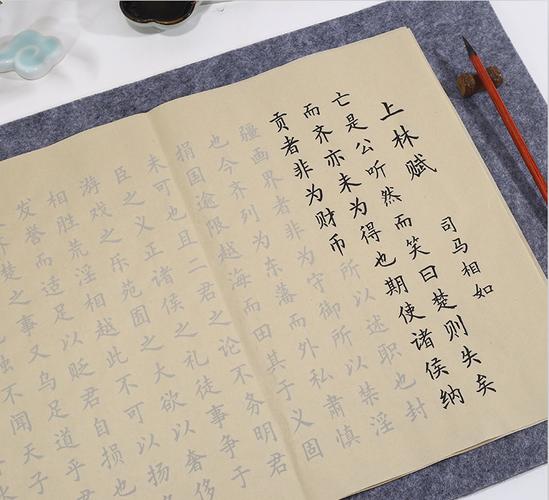 上林赋
司马相如
亡是公听然而笑曰楚则失矣
而齐亦未为得也期使诸侯纳
贡者非为财币所以述职也封
疆画界者非为守御所以禁淫
也今齐列为东藩而外私肃慎
捐国逾限越海而田其于义固
未可也且二君之论不务明君
臣之义正诸侯之礼徒事争于
游戏之乐苑囿之大欲以奢侈
相胜荒淫相越此不可以扬
发誉而适足以贬君自损也
齐楚之事又乌足道乎君
独不闻天子